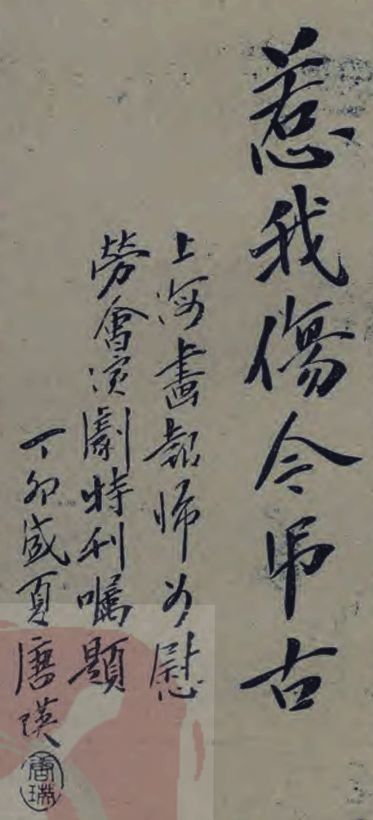 惹我傷今吊古
上海畫報婦女慰
勞會演劇特刊囑題
丁卯盛夏唐瑛
唐瑛